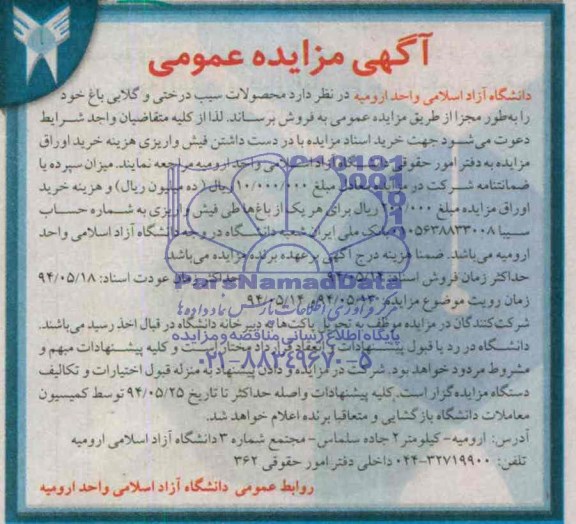 آگهی مزایده عمومی
دانشگاه آزاد اسلامی واحد ارومیه در نظر دارد محصولات سیب درختی و گلابی باغ خود
را به‌طور مجزا از طریق مزایده عمومی به فروش برساند. لذا از کلیه متقاضیان واجد شرایط
دعوت می‌شود جهت خرید اسناد مزایده با در دست داشتن فیش واریزی هزینه خرید اوراق
مزایده به دفتر امور حقوقی دانشگاه آزاد اسلامی واحد ارومیه مراجعه نمایند. میزان سپرده یا
ضمانتنامه شرکت در مزایده معادل مبلغ ۱۰/۰۰۰/۰۰۰ ریال (ده میلیون ریال) و هزینه خرید
اوراق مزایده مبلغ ۲۰۰/۰۰۰ ریال برای هر یک از باغ‌ها طی فیش واریزی به شماره حساب
سیبا بانک ملی ایران شعبه دانشگاه در وجه دانشگاه آزاد اسلامی واحد
ارومیه می‌باشد. ضمنا هزینه درج آگهی بر عهده برنده مزایده می‌باشد
حداکثر زمان فروش اسناد: ۹۴/۰۵/۱۴ حداکثر زمان عودت اسناد: ۹۴/۰۵/۱۸
ParsNamadData
زمان رویت موضوع مزایده: ۹۴/۰۵/۱۳ و ۹۴/۰۵/۱۴
مرکز فرآوری اطلاعات پارس نماد داده‌ها
شرکت‌کنندگان در مزایده موظف به تحویل پاکت‌ها به دبیرخانه دانشگاه در قبال اخذ رسید می‌باشند.
پایگاه اطلاع رسانی مناقصه و مزایده
دانشگاه در رد یا قبول پیشنهادات یا انعقاد قرارداد مختار است و کلیه پیشنهادات مبهم و
۰۲۱-۸۸۳۴۹۶۷۰-۵
مشروط مردود خواهد بود. شرکت در مزایده و دادن پیشنهاد به منزله قبول اختیارات و تکالیف
دستگاه مزایده‌گزار است. کلیه پیشنهادات واصله حداکثر تا تاریخ ۹۴/۰۵/۲۵ توسط کمیسیون
معاملات دانشگاه بازگشایی و متعاقبا برنده اعلام خواهد شد.
آدرس: ارومیه- کیلومتر ۲ جاده سلماس- مجتمع شماره ۳ دانشگاه آزاد اسلامی ارومیه
تلفن: ۳۲۷۱۹۹۰۰-۰۴۴ داخلی دفتر امور حقوقی ۳۶۲
روابط عمومی دانشگاه آزاد اسلامی واحد ارومیه